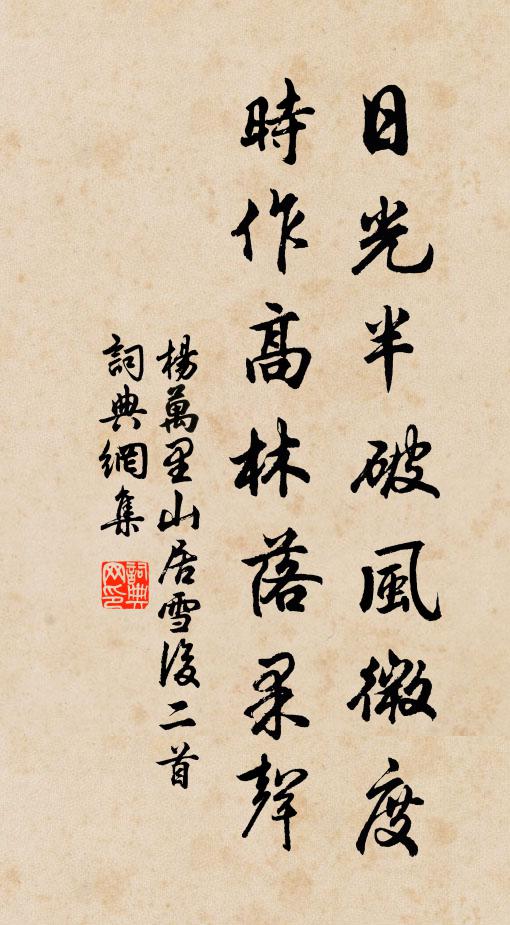 日光半破風微度
時作高林落果聲
楊萬里山居雪後二首
詞典網集
詞典
网印